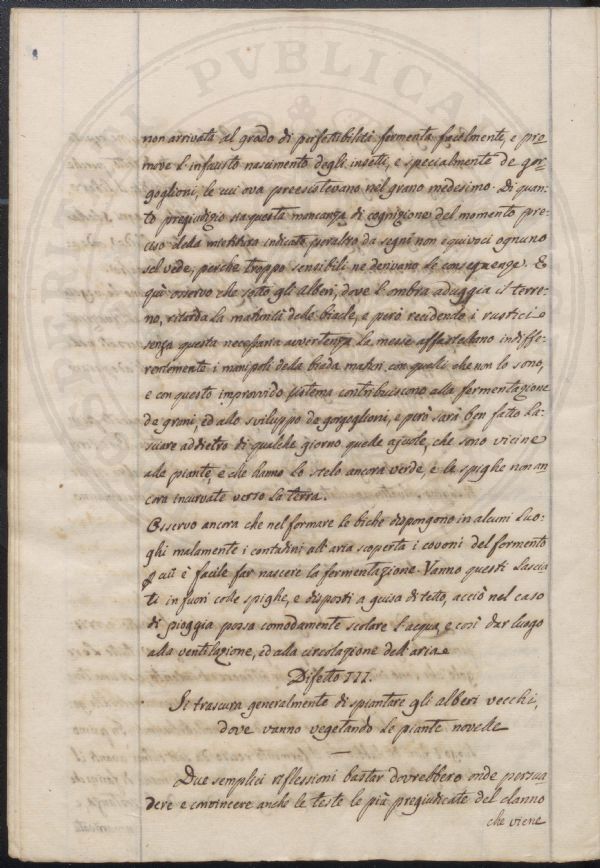 PVBLICA
non arrivata al grado di perfetibilità fermenta facilmente, e pro
move l'infausto nascimento degli insetti, e specialmente de gor
goglioni, le cui ova preesistevano nel grano medesimo. Di quan
to pregiudizio sia questa mancanza di cognizione del momento pre
ciso della mietitura indicato peraltro da segni non equivoci ognuno
sel vede, perche troppo sensibili ne derivano le conseguenze. E
quì osservo che sotto gli alberi, dove l'ombra aduggia il terre
no, ritarda la maturità delle biade, e però recidendo i rustici
senza questa necessaria avvertenza la messe affastellano indiffe
rentemente i manipoli della biada matura con quelli che non lo sono,
e con questo improvvido sistema contribuiscono alla fermentazione
de grani, ed allo sviluppo de gorgoglioni, e però sarà ben fatto la
sciare addietro di qualche giorno quelle ajuole, che sono vicine
alle piante, e che hanno lo stelo ancora verde, e le spighe non an
cora incurvate verso la terra.
Osservo ancora che nel formare le biche dispongono in alcuni luo-
ghi malamente i contadini all'aria scoperta i covoni del formento
cui è facile far nascere la fermentazione. Vanno questi lascia
ti in fuori colle spighe, e disposti a guisa di tetto, acciò nel caso
di pioggia possa comodamente scolare l'acqua, e così dar luogo
alla ventilazione, ed alla circolazione dell'aria
Difetto III.
Si trascura generalmente di spiantare gli alberi vecchi,
dove vanno vegetando le piante novelle
Due semplici riflessioni bastar dovrebbero onde persua
dere e convincere anche le teste le più pregiudicate del danno
che viene